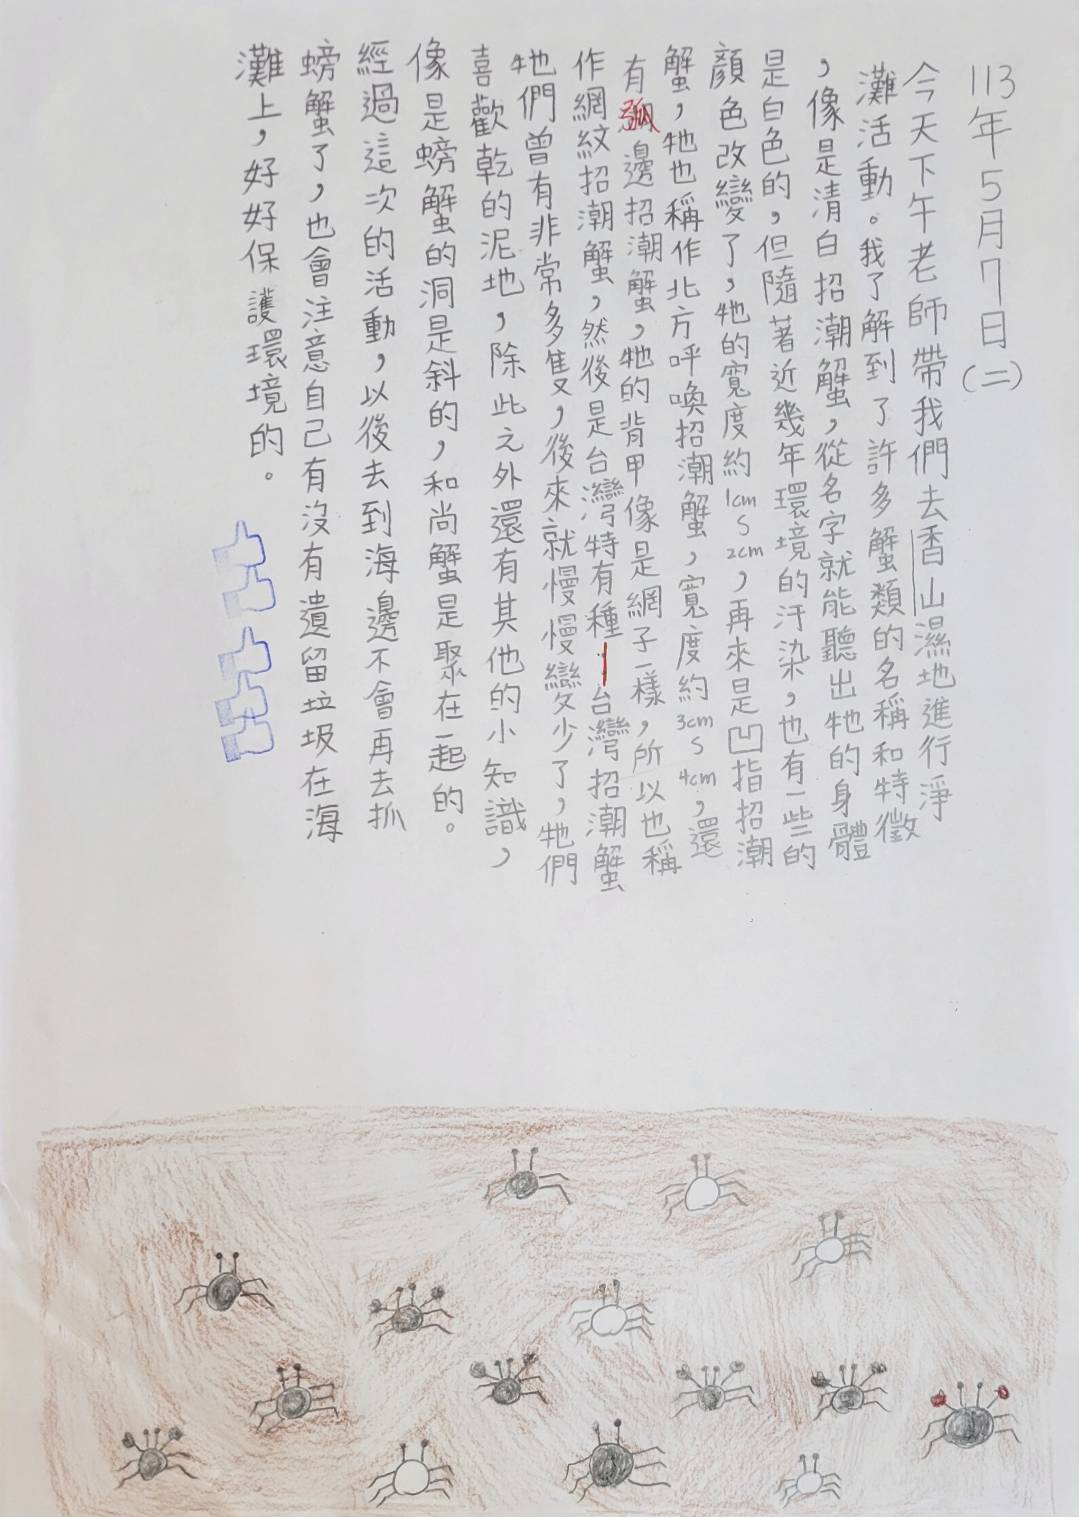 113年5月7日(二)
今天下午老師帶我們去香山濕地進行淨
灘活動。我了解到了許多蟹類的名稱和特徵
，像是清白招潮蟹，從名字就能聽出牠的身體
是白色的，但隨著近幾年環境的汙染，也有一些的
顏色改變了，牠的寬度約1cm~2cm，再來是凹指招潮
蟹，牠也稱作北方呼喚招潮蟹，寬度約3cm~4cm，還
有弧邊招潮蟹，牠的背甲像是網子一樣，所以也稱
作網紋招潮蟹，然後是台灣特有種|台灣招潮蟹
牠們曾有非常多隻，後來就慢慢變少了，牠們
喜歡乾的泥地，除此之外還有其他的小知識，
像是螃蟹的洞是斜的，和尚蟹是聚在一起的。
經過這次的活動，以後去到海邊不會再去抓
螃蟹了，也會注意自己有沒有遺留垃圾在海
灘上，好好保護環境的。